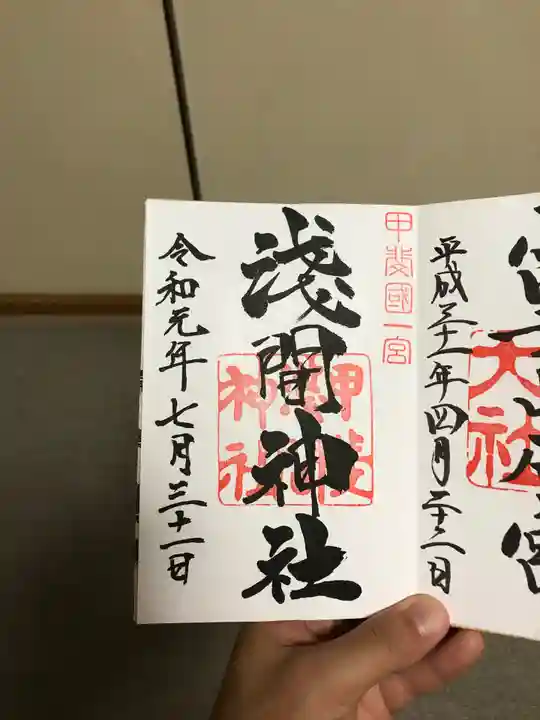 大社
平成三十一年四月二十二日
甲斐國一宮
淺間神社
令和元年七月三十一日